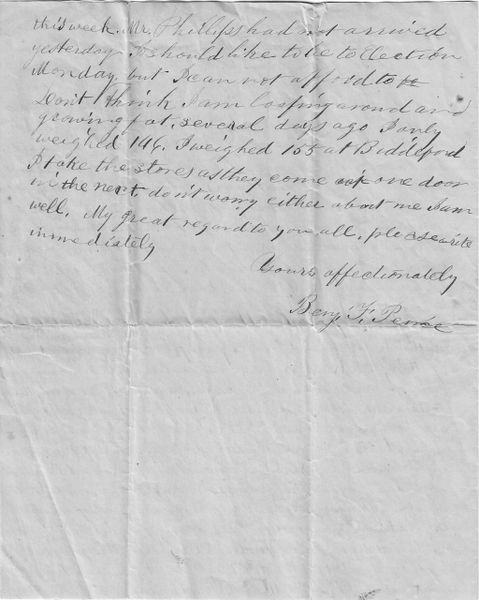 this week, Mr. Phillips had not arrived
yesterday. I should like to be to Election
Monday, but I can not afford to
Don't think I am loafing around and
growing fat, several days ago I only
weighed 146. I weighed 155 at Biddeford
I take the stores as they come one door
in the next, don't worry either about me I am
well. My great regard to you all, please write
immediately
Yours affectionately
Benj. F.